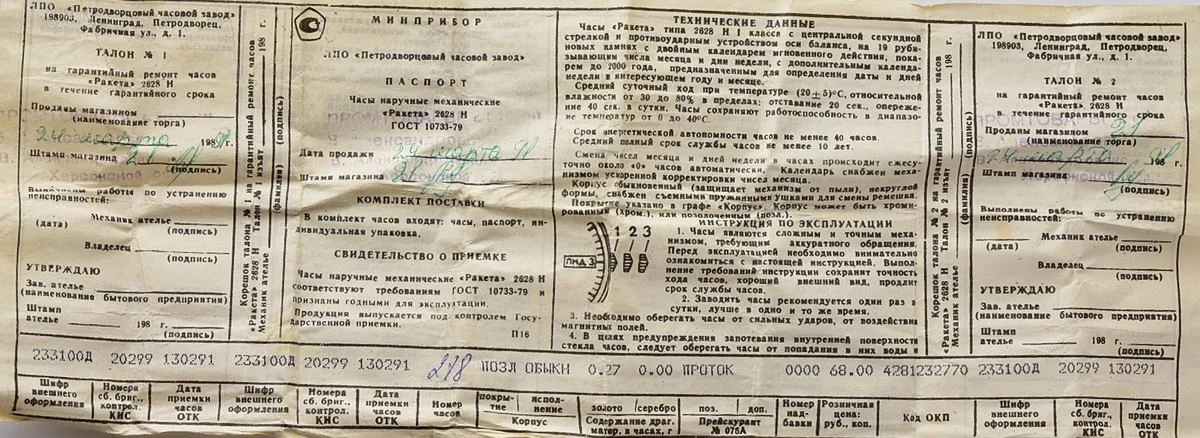 ЛПО «Петродворцовый часовой завод»
198903, Ленинград, Петродворец,
Фабричная ул., д. 1.
ТАЛОН № 1
на гарантийный ремонт часов
«Ракета» 2628 Н
в течение гарантийного срока
Проданы магазином
(наименование торга)
24 марта 198 г.
Штамп магазина 21
(подпись)
Выполнены работы по устранению
неисправностей:
Механик ателье
(дата) (подпись)
Владелец
(подпись)
УТВЕРЖДАЮ
Зав. ателье
(наименование бытового предприятия)
Штамп
ателье 198 г.
(подпись)
Корешок талона № 1 на гарантийный ремонт часов
«Ракета» 2628 Н Талон № 1 изъят 198 г.
Механик ателье
(фамилия) (подпись)
МИНПРИБОР
ЛПО «Петродворцовый часовой завод»
ПАСПОРТ
Часы наручные механические
«Ракета» 2628 Н
ГОСТ 10733-79
Дата продажи 24 марта 91
Штамп магазина
КОМПЛЕКТ ПОСТАВКИ
В комплект часов входят: часы, паспорт, ин-
дивидуальная упаковка.
СВИДЕТЕЛЬСТВО О ПРИЕМКЕ
Часы наручные механические «Ракета» 2628 Н
соответствуют требованиям ГОСТ 10733-79 и
признаны годными для эксплуатации.
Продукция выпускается под контролем Госу-
дарственной приемки.
П16
ТЕХНИЧЕСКИЕ ДАННЫЕ
Часы «Ракета» типа 2628 Н I класса с центральной секундной
стрелкой и противоударным устройством оси баланса, на 19 руби-
новых камнях с двойным календарем мгновенного действия, пока-
зывающим числа месяца и дни недели, с дополнительным календа-
рем до 2000 года, предназначенным для определения даты и дней
недели в интересующем году и месяце.
Средний суточный ход при температуре (20±5)°С, относительной
влажности от 30 до 80% в пределах; отставание 20 сек., опереже-
ние 40 сек. в сутки. Часы сохраняют работоспособность в диапазо-
не температур от 0 до 40°С.
Срок энергетической автономности часов не менее 40 часов.
Средний полный срок службы часов не менее 10 лет.
Смена чисел месяца и дней недели в часах происходит ежесу-
точно около «0» часов автоматически. Календарь снабжен меха-
низмом ускоренной корректировки чисел месяца.
Корпус обыкновенный (защищает механизм от пыли), некруглой
формы, снабжен съемными пружинными ушками для смены ремешка.
Покрытие указано в графе «Корпус». Корпус может быть хроми-
рованный (хром.), или позолоченный (позл.).
ИНСТРУКЦИЯ ПО ЭКСПЛУАТАЦИИ
1 2 3
1. Часы являются сложным и точным меха-
низмом, требующим аккуратного обращения.
Перед эксплуатацией необходимо внимательно
ознакомиться с настоящей инструкцией. Выпол-
нение требований инструкции сохранит точность
хода часов, хороший внешний вид, продлит
срок службы часов.
2. Заводить часы рекомендуется один раз в
сутки, лучше в одно и то же время.
3. Необходимо оберегать часы от сильных ударов, от воздействия
магнитных полей.
4. В целях предупреждения запотевания внутренней поверхности
стекла часов, следует оберегать часы от попадания в них воды и
Корешок талона № 2 на гарантийный ремонт часов
«Ракета» 2628 Н Талон № 2 изъят 198 г.
Механик ателье
(фамилия) (подпись)
ЛПО «Петродворцовый часовой завод»
198903, Ленинград, Петродворец,
Фабричная ул., д. 1.
ТАЛОН № 2
на гарантийный ремонт часов
«Ракета» 2628 Н
в течение гарантийного срока
Проданы магазином 21
(наименование торга)
24 марта 198 г.
Штамп магазина
(подпись)
Выполнены работы по устранению
неисправностей:
Механик ателье
(дата) (подпись)
Владелец
(подпись)
УТВЕРЖДАЮ
Зав. ателье
(наименование бытового предприятия)
Штамп
ателье 198 г.
(подпись)
233100Д 20299 130291 233100Д 20299 130291 218 ПОЗЛ ОБЫКН 0.27 0.00 ПРОТОК 0000 68.00 4281232770 233100Д 20299 130291
Шифр внешнего оформления
Номера сб. бриг., контрол. КИС
Дата приемки часов ОТК
Шифр внешнего оформления
Номера сб. бриг., контрол. КИС
Дата приемки часов ОТК
Номер часов
покры-тие испол-нение Корпус
золото серебро Содержание драг. матер. в часах, г
поз. доп. Прейскурант № 076А
Номер над-бавки
Розничная цена: руб., коп.
Код ОКП
Шифр внешнего оформления
Номера сб. бриг., контрол. КИС
Дата приемки часов ОТК